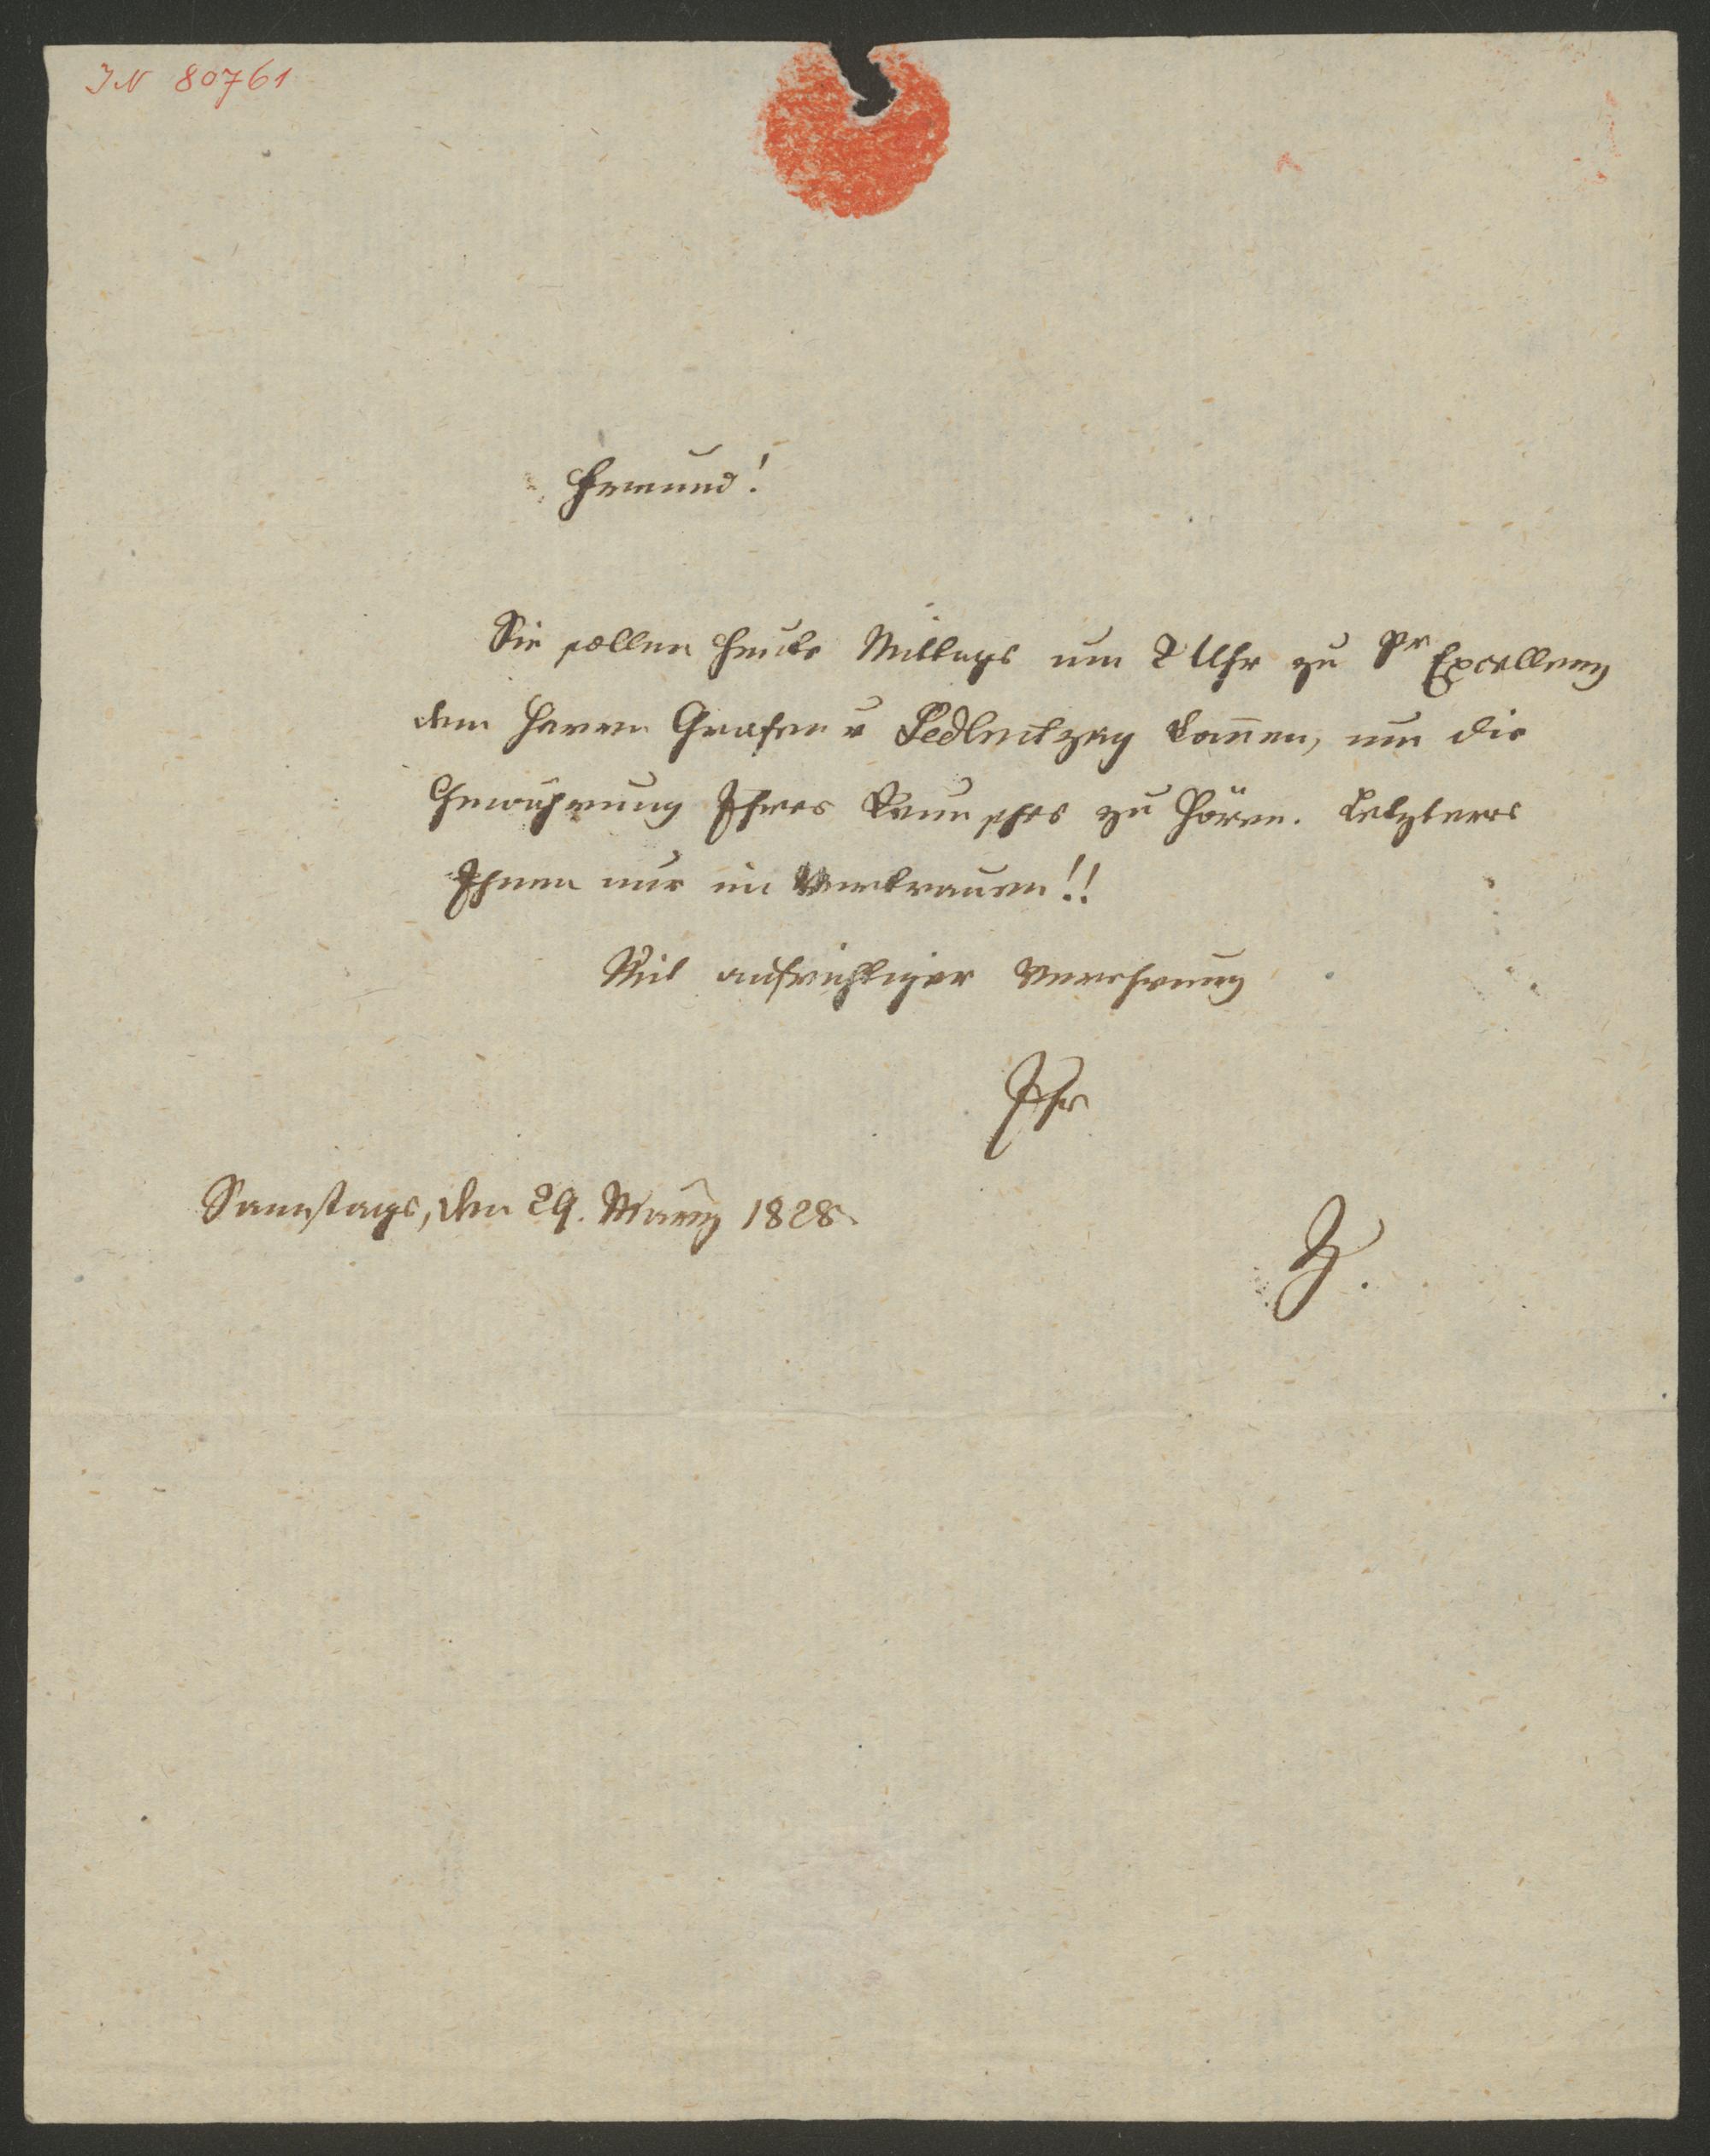 IN 80761
Freund!
Sie sollen heute Mittags um 2 Uhr zu Sr Excellenz
dem Herrn Grafen v Sedlnitzky kom̄en, um die
Gewährung Ihres Wunsches zu hören. Letzteres
Ihnen nur im Vertrauen!!
Mit aufrichtiger Verehrung
Ihr
Samstags, den 29. März 1828.
Z.